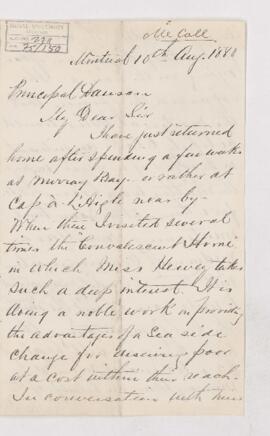 McCall
Montreal 10th Aug. 1888
Principal Dawson
My Dear Sir
I have just returned
home after spending a few weeks
at Murray Bay or rather at
Cap a l'Aigle near by.
When there I visited several
times the "Convalescent Home"
in which Miss Hervey takes
such a deep interest. It is
doing a noble work in providing
the advantages of a Sea side
change for deserving poor
at a cost within their reach.
In conversation with Miss